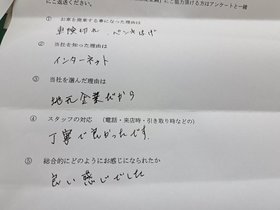 にご返送ください。
① お車を廃車する事になった理由は
車検切れ パンクほか
② 当社を知った理由は
インターネット
③ 当社を選んだ理由は
地元企業だから
④ スタッフの対応 (電話・来店時・引き取り時などの)
丁寧で良かったです。
⑤ 総合的にどのようにお感じになられたか
良い感じでした